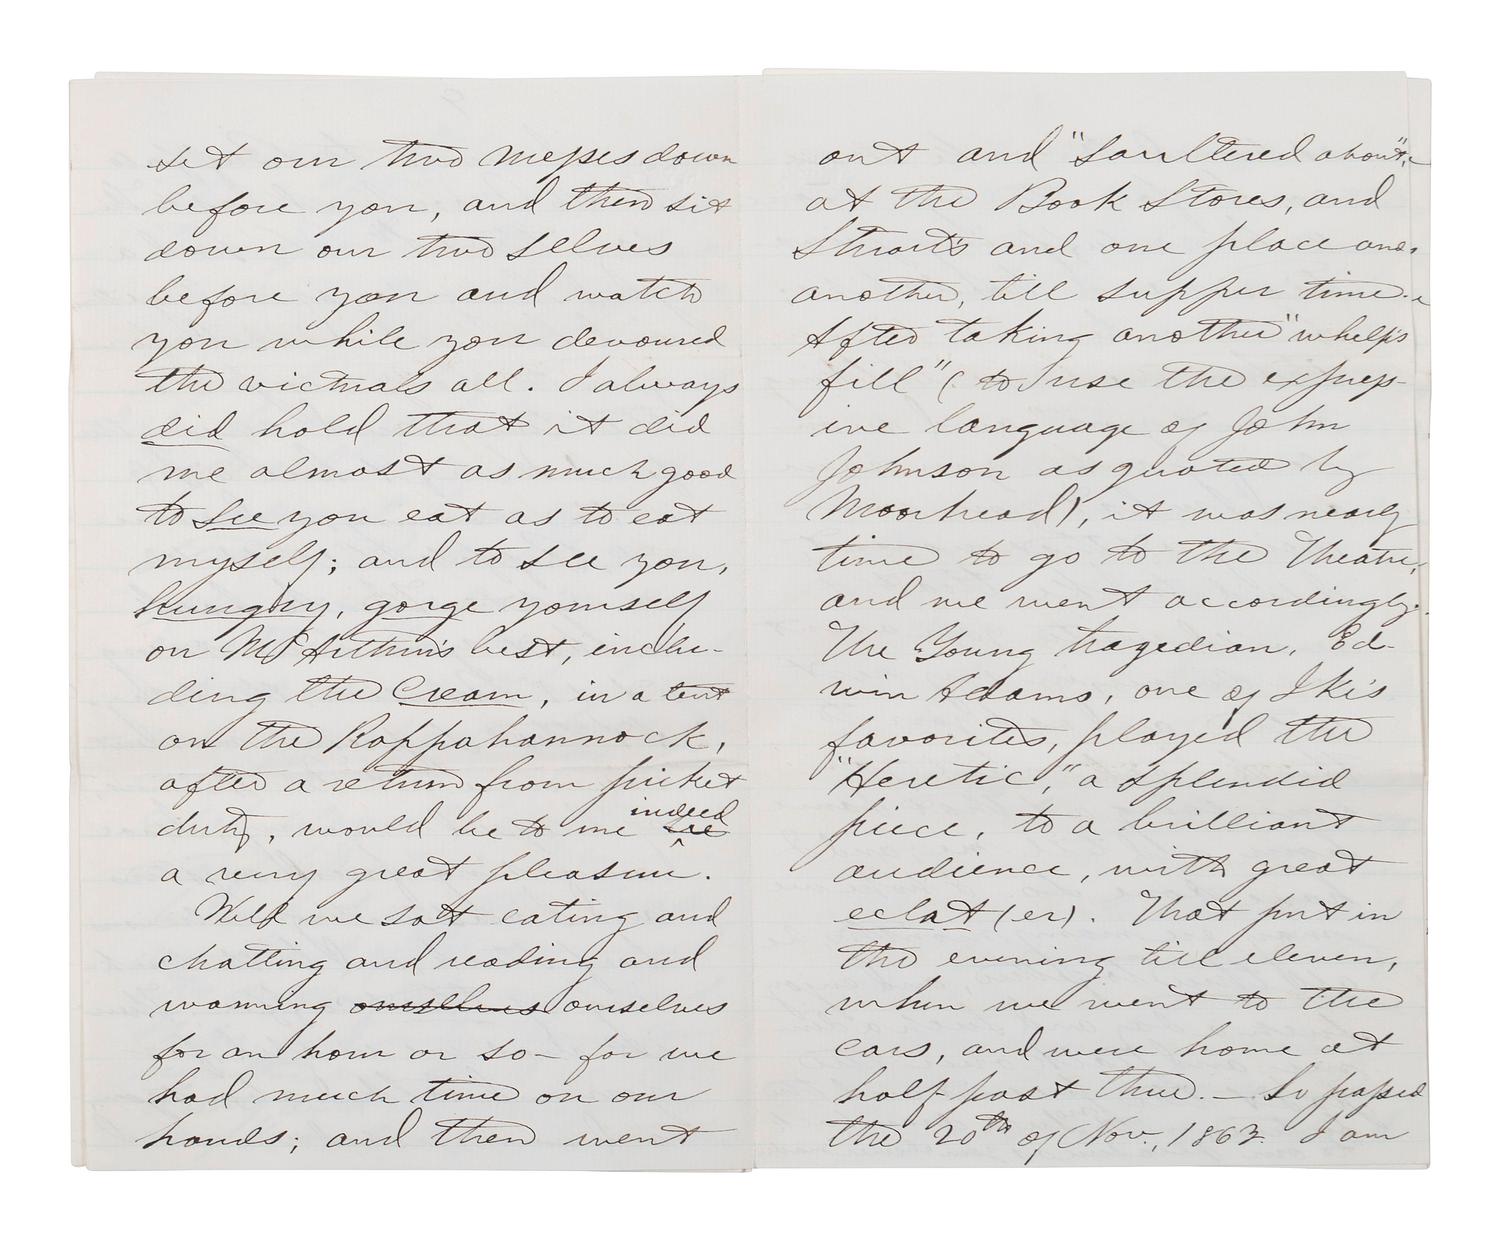 set our two messes down
before you, and then sit
down our two selves
before you and watch
you while you devoured
the victuals all. I always
did hold that it did
me almost as much good
to see you eat as to eat
myself; and to see you,
hungry, gorge yourself
on McArthur's best, inclu-
ding the Cream, in a tent
on the Rappahannock,
after a return from picket
duty, would be to me indeed
a very great pleasure.
Well we sat eating and
chatting and reading and
warming ourselves ourselves
for an hour or so – for we
had much time on our
hands; and then went
out and "saultered about",
at the Book Stores, and
Stuart's and one place and
another, till supper time.
After taking another "whelp's
fill" (to use the express-
ive language of John
Johnson as quoted by
Moorhead), it was nearly
time to go to the Theatre,
and we went accordingly.
The Young tragedian, Ed-
win Adams, one of Ike's
favorites, played the
"Heretic," a splendid
piece, to a brilliant
audience, with great
eclat (er). That put in
the evening till eleven,
when we went to the
cars, and were home at
half past three. – So passed
the 20th of Nov., 1862. I am